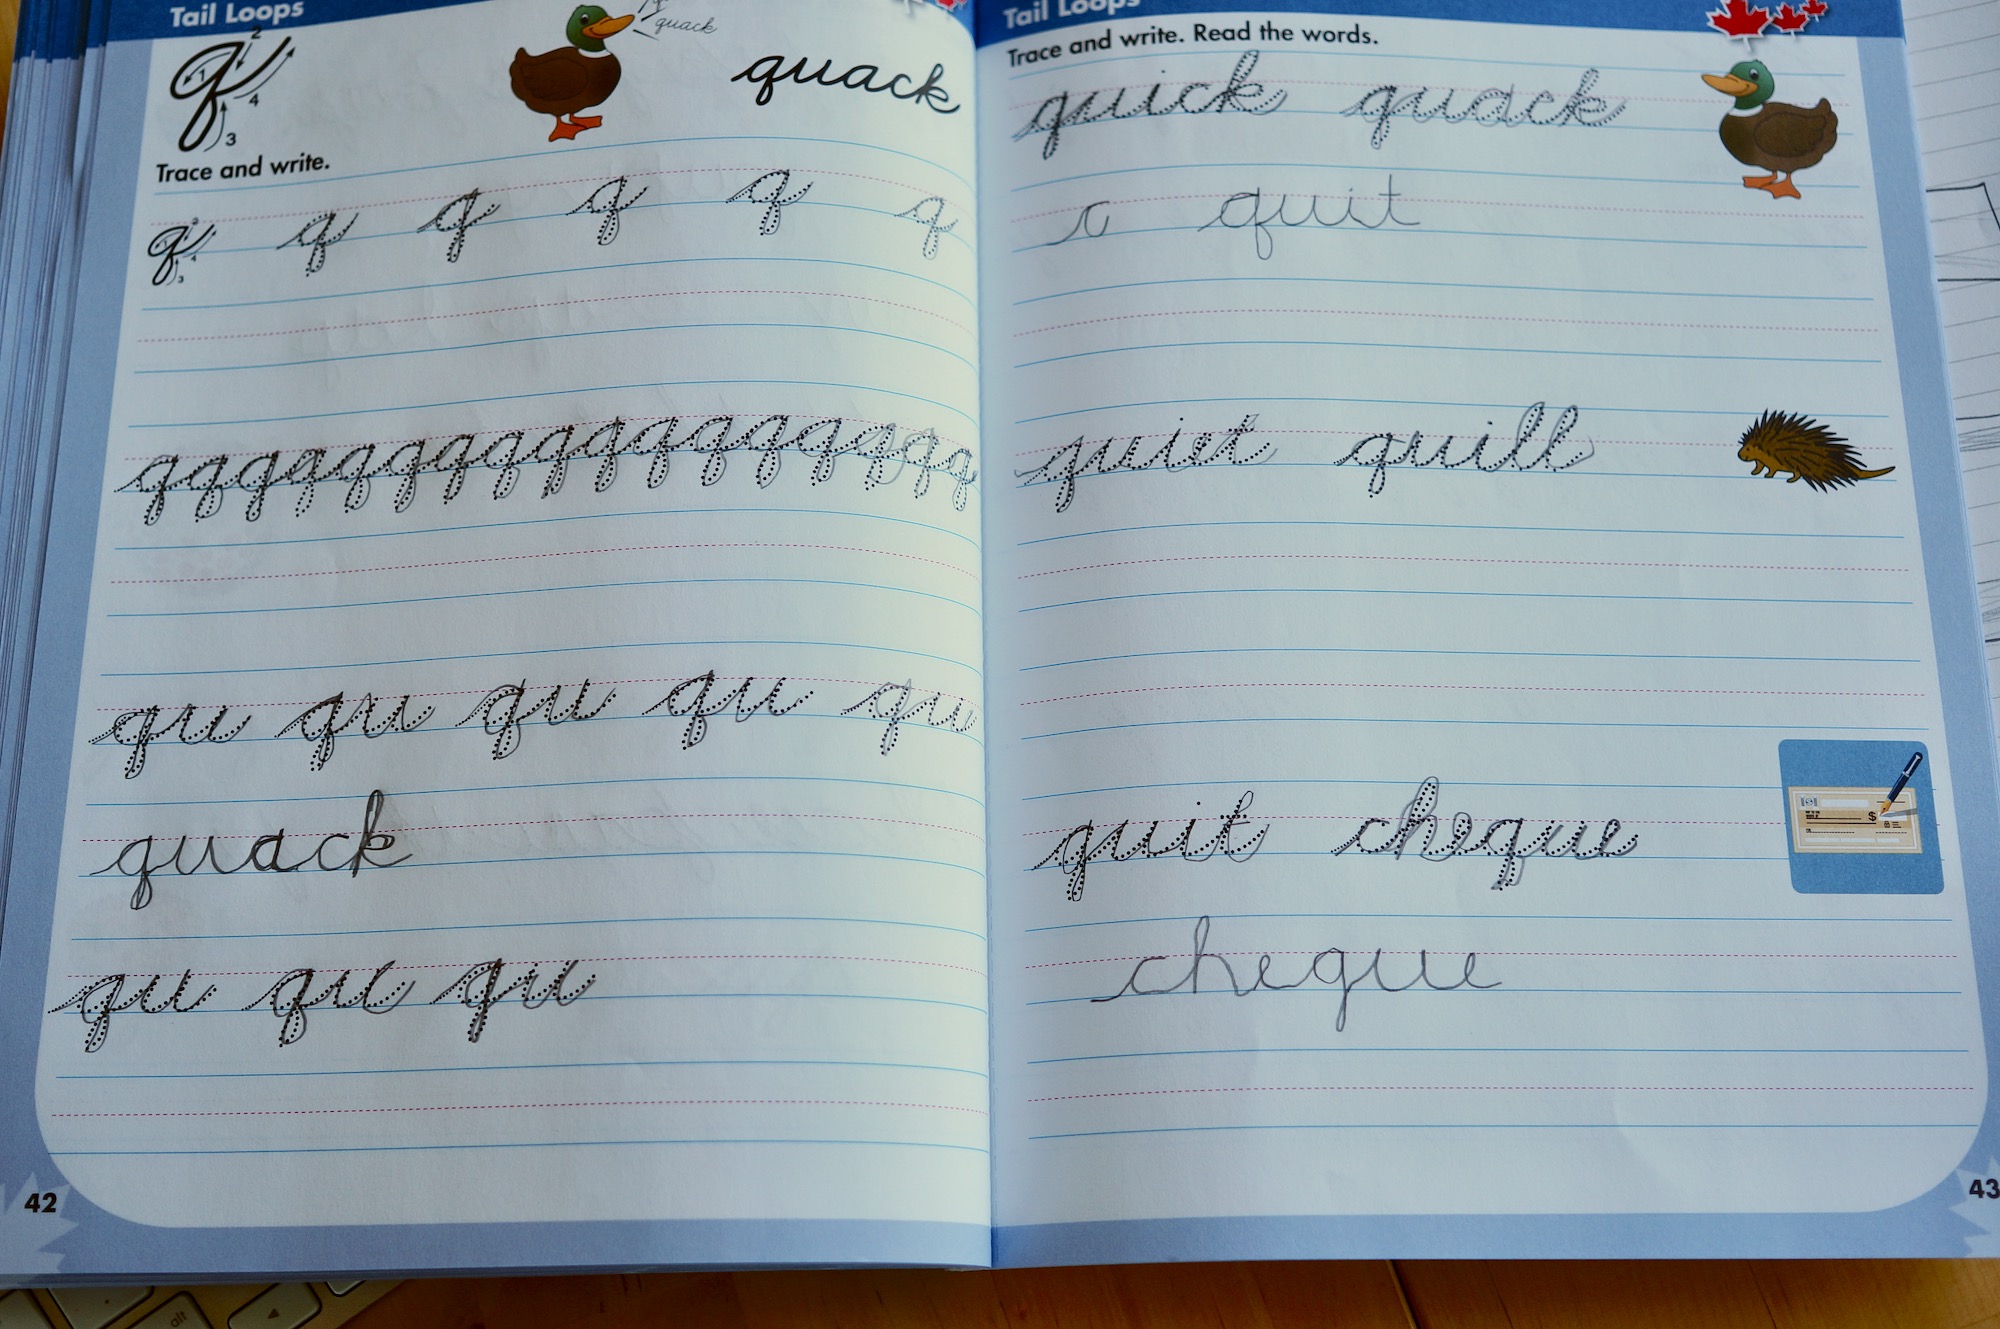 Tail Loops
quack
q 1 2 3 4 quack
Trace and write.
q q q q q q
qqqqqqqqqqqqqqqqq
qu qu qu qu qu
quack
qu qu qu
42
Tail Loops
Trace and write. Read the words.
quick quack
quit
quiet quill
quit cheque
$
cheque
43
alt